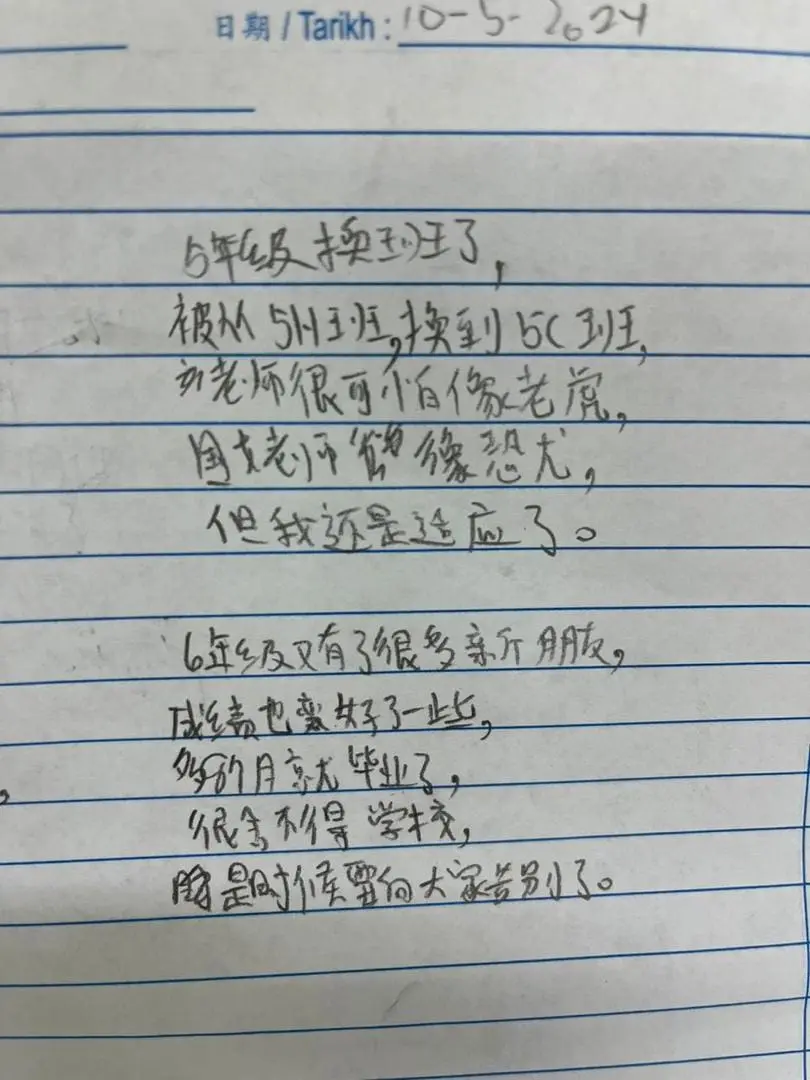 日期 / Tarikh : 10-5-2024
5年级换班了,
被从5H班,换到5C班,
老师很可怕像老虎,
国文老师像恐龙,
但我还是适应了。
6年级又有了很多新朋友,
成绩也变好了一些,
多 月就毕业了,
很舍不得学校,
是时候要向大家告别了。